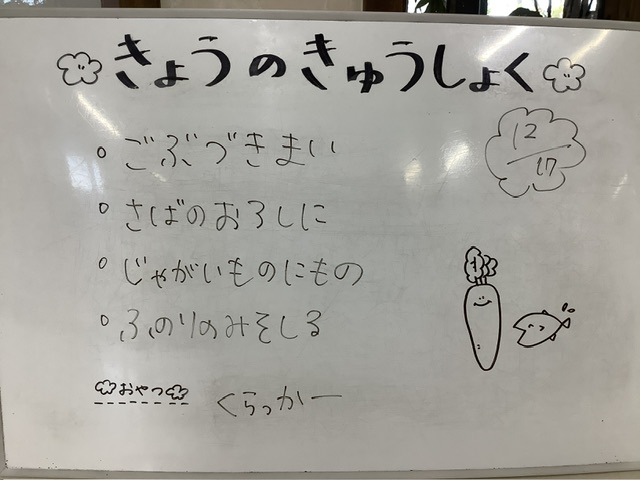 きょうのきゅうしょく
12/17
◦ ごぶづきまい
◦ さばのおろしに
◦ じゃがいものにもの
◦ ふのりのみそしる
おやつ くらっかー